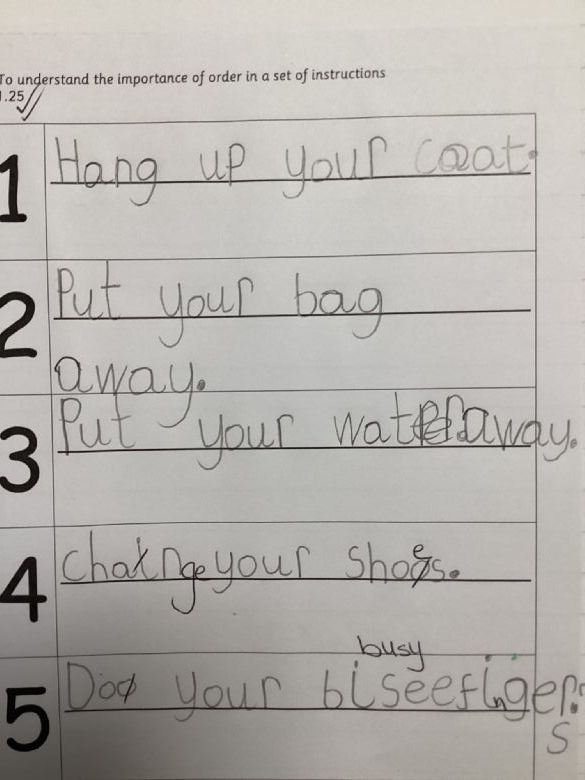 To understand the importance of order in a set of instructions
1.25
1 Hang up your coat.
2 Put your bag
away.
3 Put your water away.
4 Chainge your shoes.
busy
5 Doo your biseefinger.
s